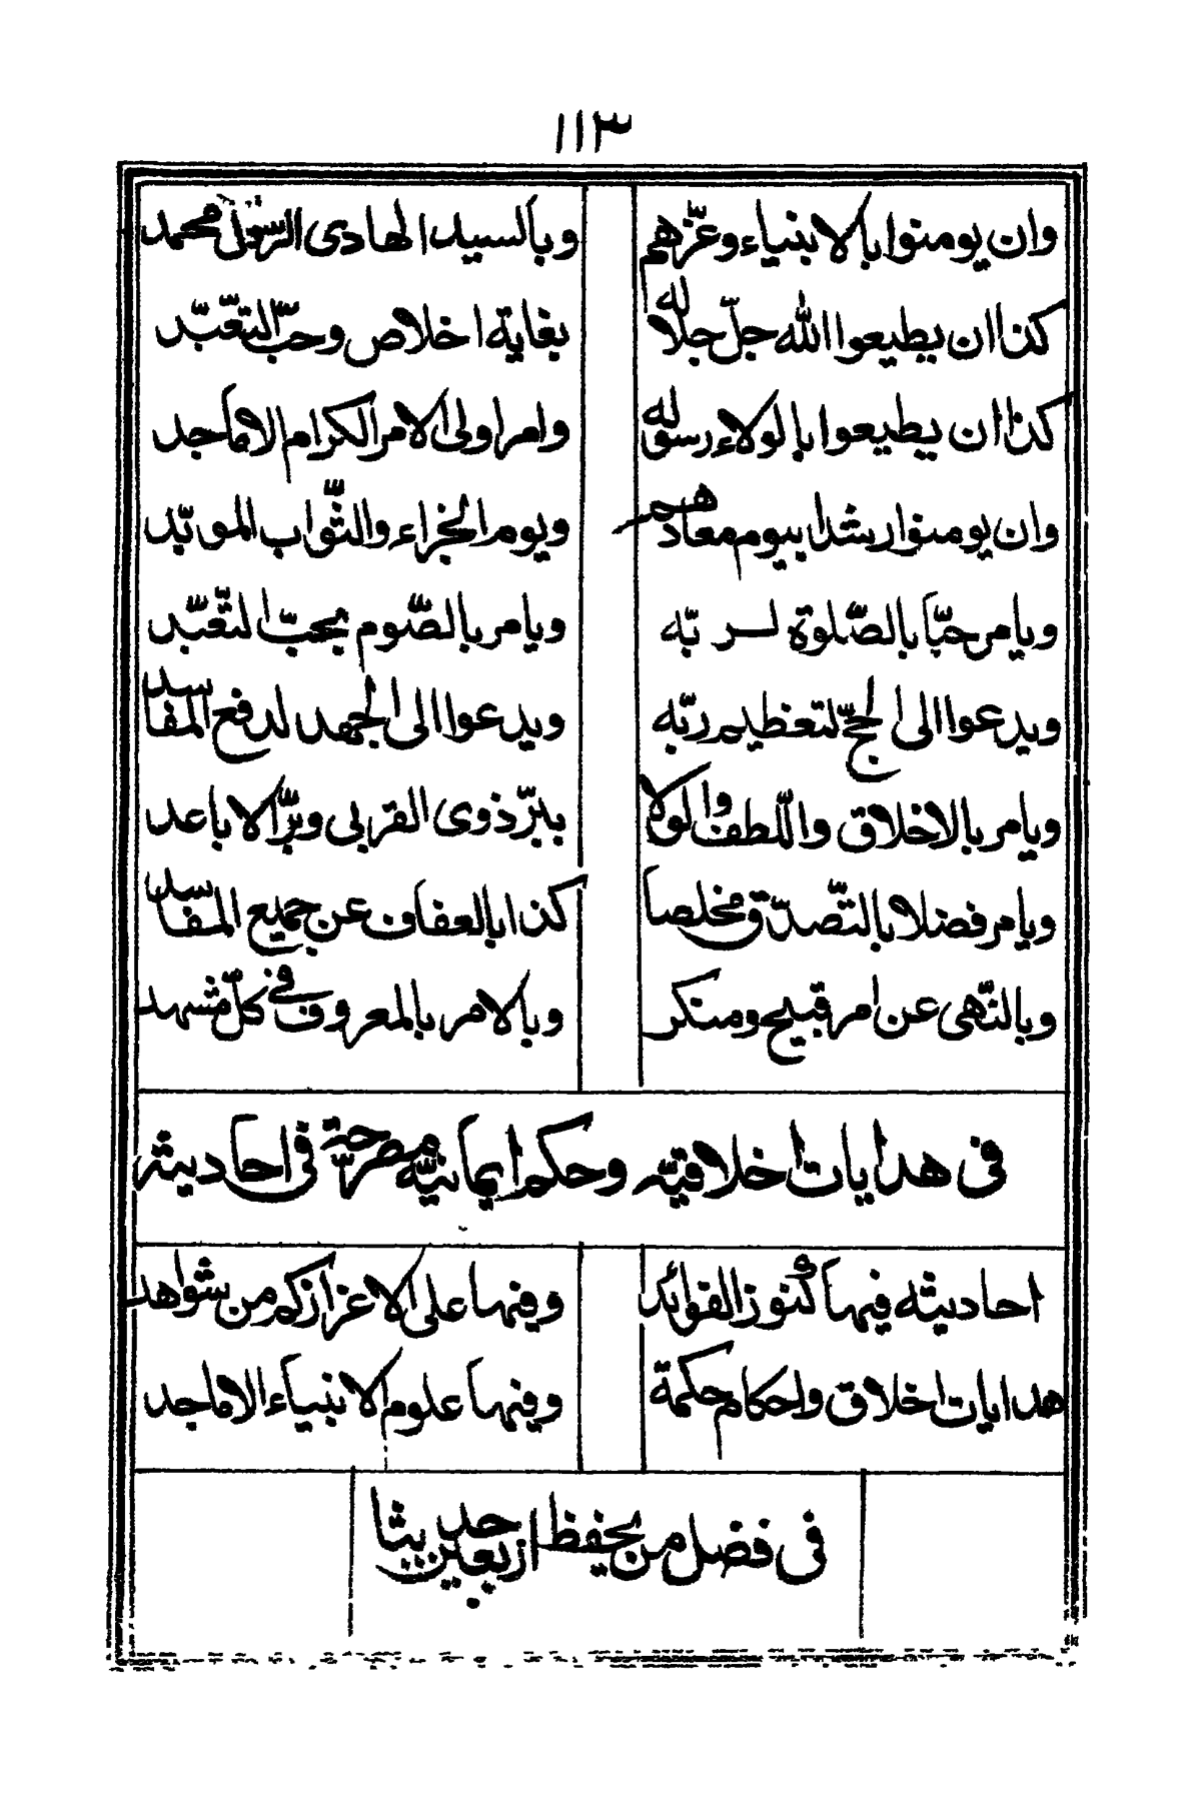 ١١٣
وان يومنوا بالانبياء وعزّهم وبالسيد الهادى الرّسول محمد
كذا ان يطيعوا الله جلّ جلاله بغاية اخلاص وحبّ التعبّد
كذا ان يطيعوا بالولاء رسوله وامر اولى الامر الكرام الاماجد
وان يومنوا رشدا بيوم معادهم ويوم الجزاء والثّواب الموبّد
ويامر حبّا بالصّلوة لربّه ويامر بالصّوم بحبّ التعبّد
ويدعوا الى الحجّ لتعظيم ربّه ويدعوا الى الجهد لدفع المفاسد
ويامر بالاخلاق واللّطف والولا ببرّ ذوى القربى وبرّ الاباعد
ويامر فضلا بالتّصدّق مخلصا كذا بالعفاف عن جميع المفاسد
وبالنّهى عن امر قبيح ومنكر وبالامر بالمعروف فى كلّ مشهد
فى هدايات اخلاقيّه وحكم ايمانيّه مصرّحة فى احاديثه
احاديثه فيها كنوز الفوائد وفيها على الاعزاز كم من شواهد
هدايات اخلاق واحكام حكمة وفيها علوم الانبياء الاماجد
فى فضل من يحفظ اربعين حديثا